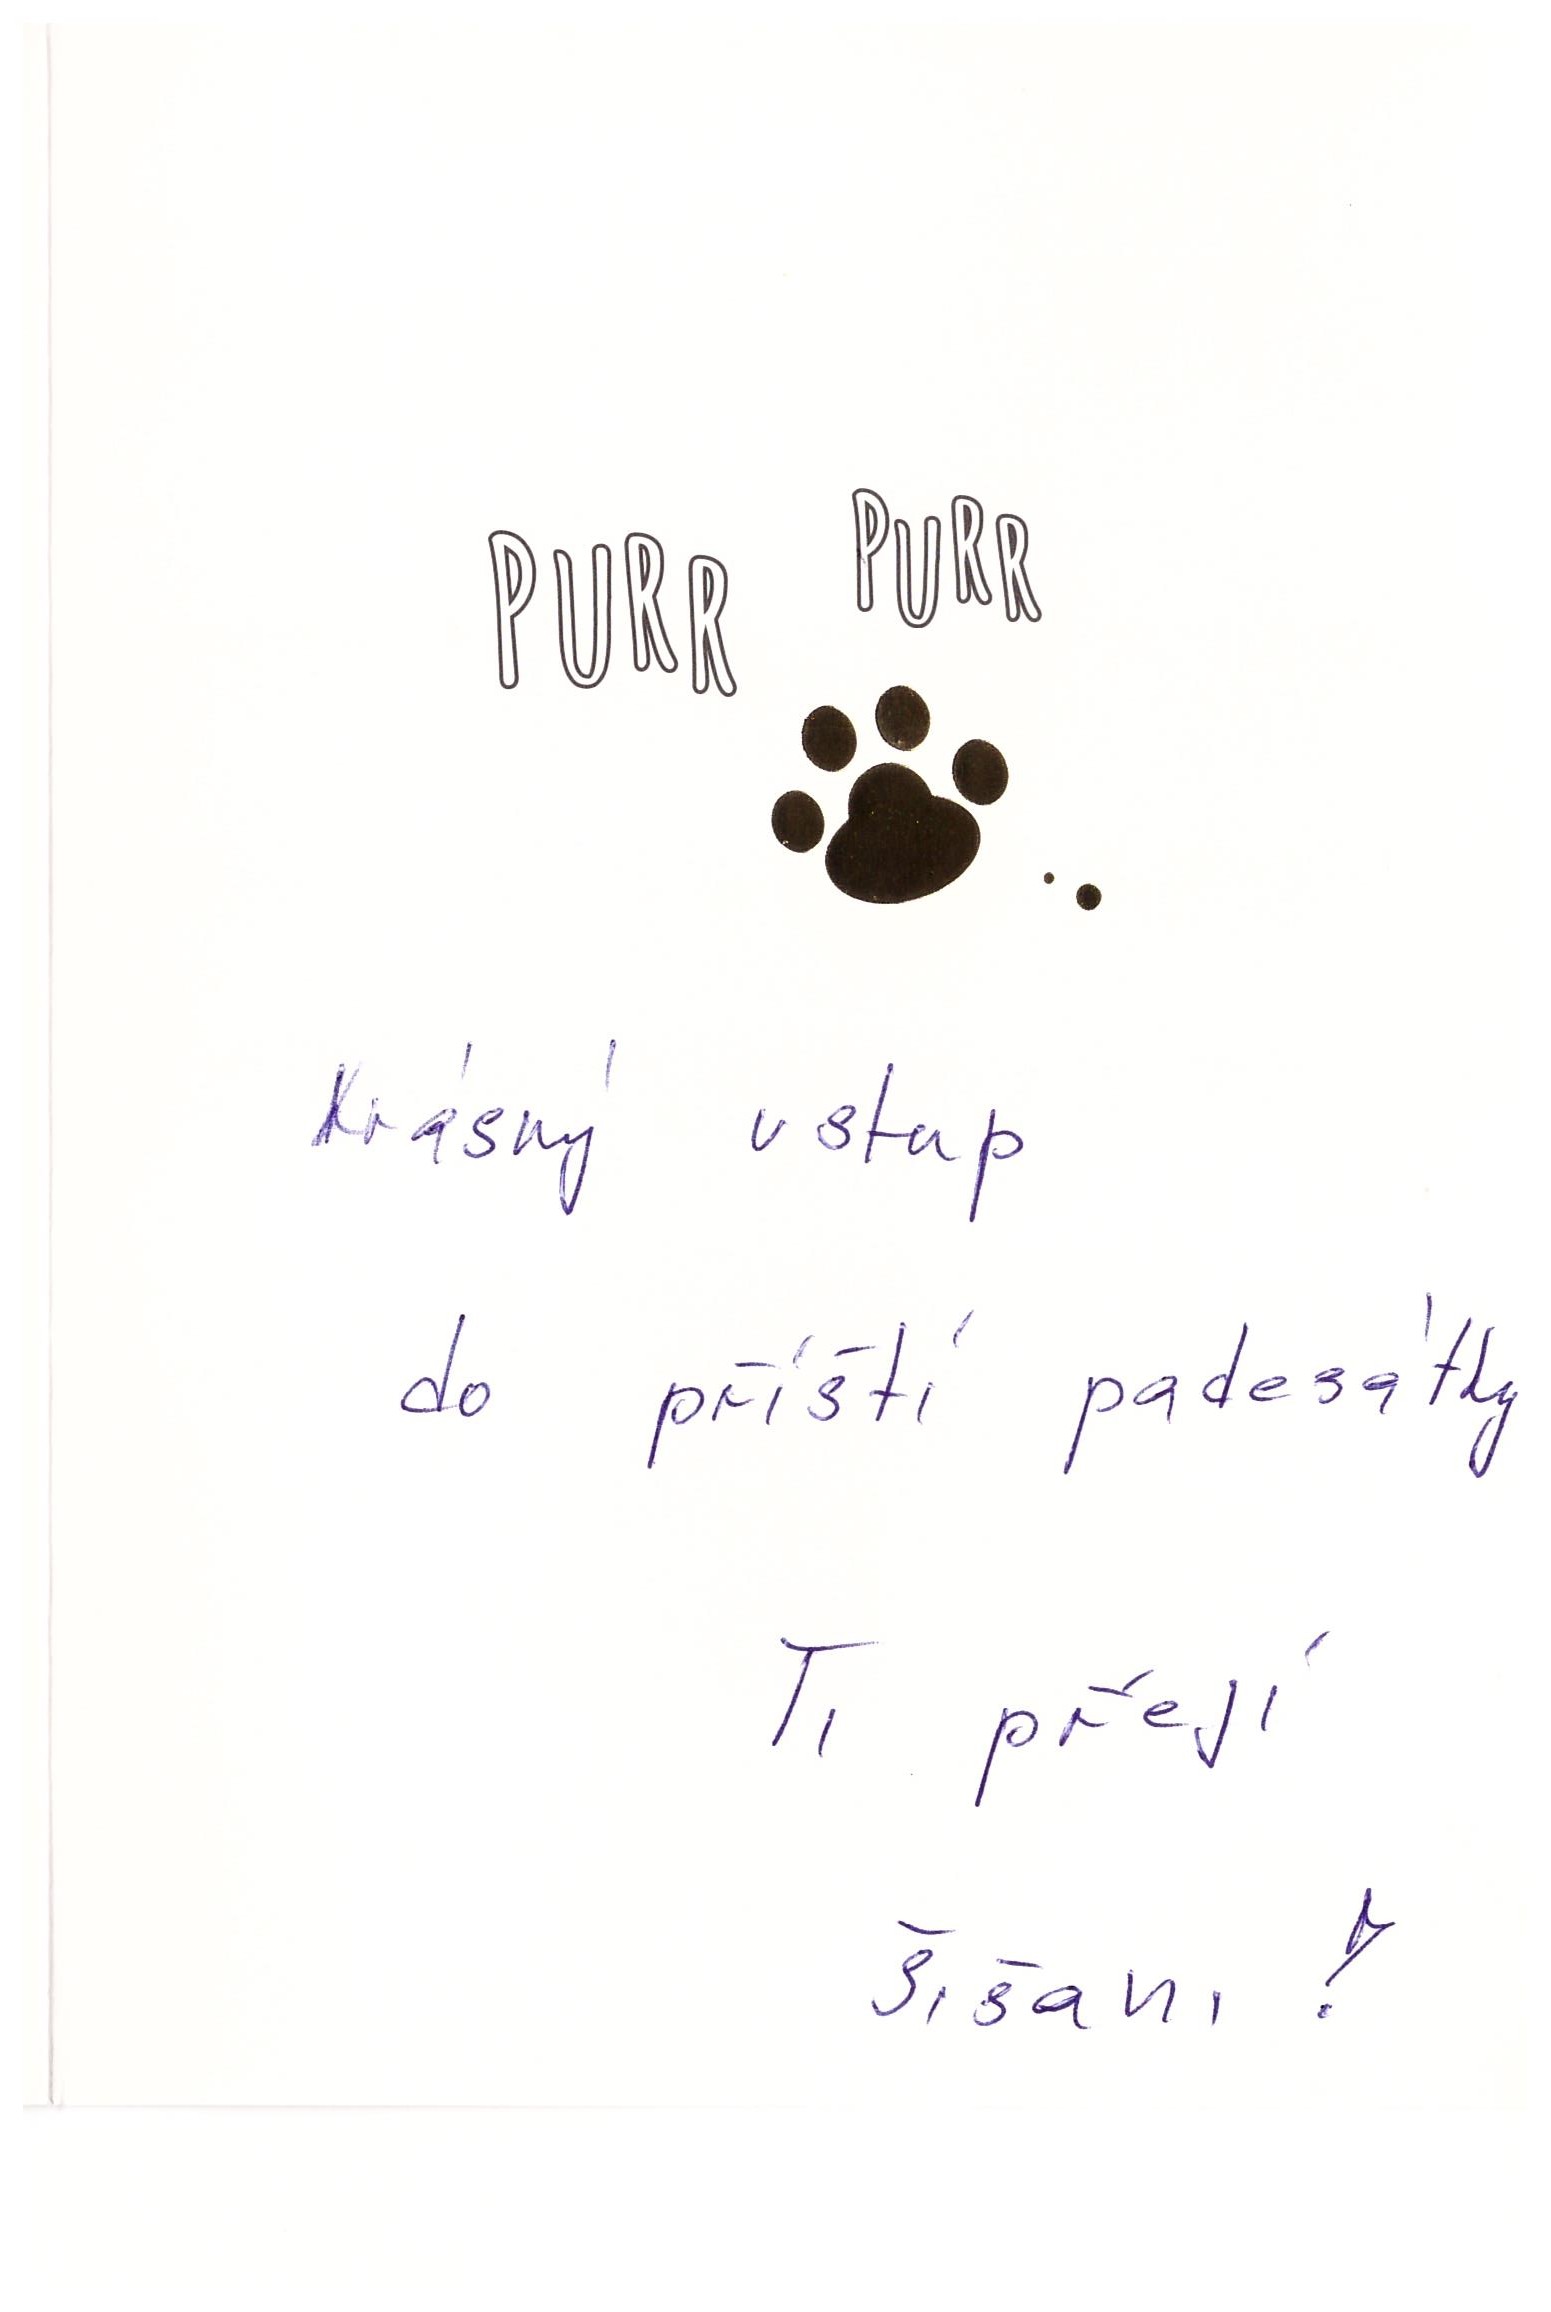 PURR PURR
Krásný vstup
do příští padesátky
Ti přejí
Šišani!